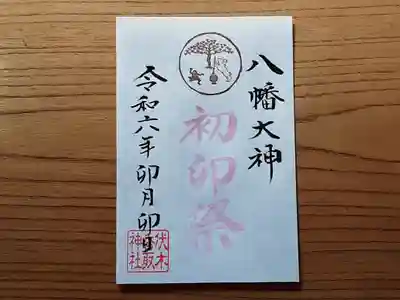 八幡大神
初卯祭
令和六年 卯月 卯日
伏木
香取
神社